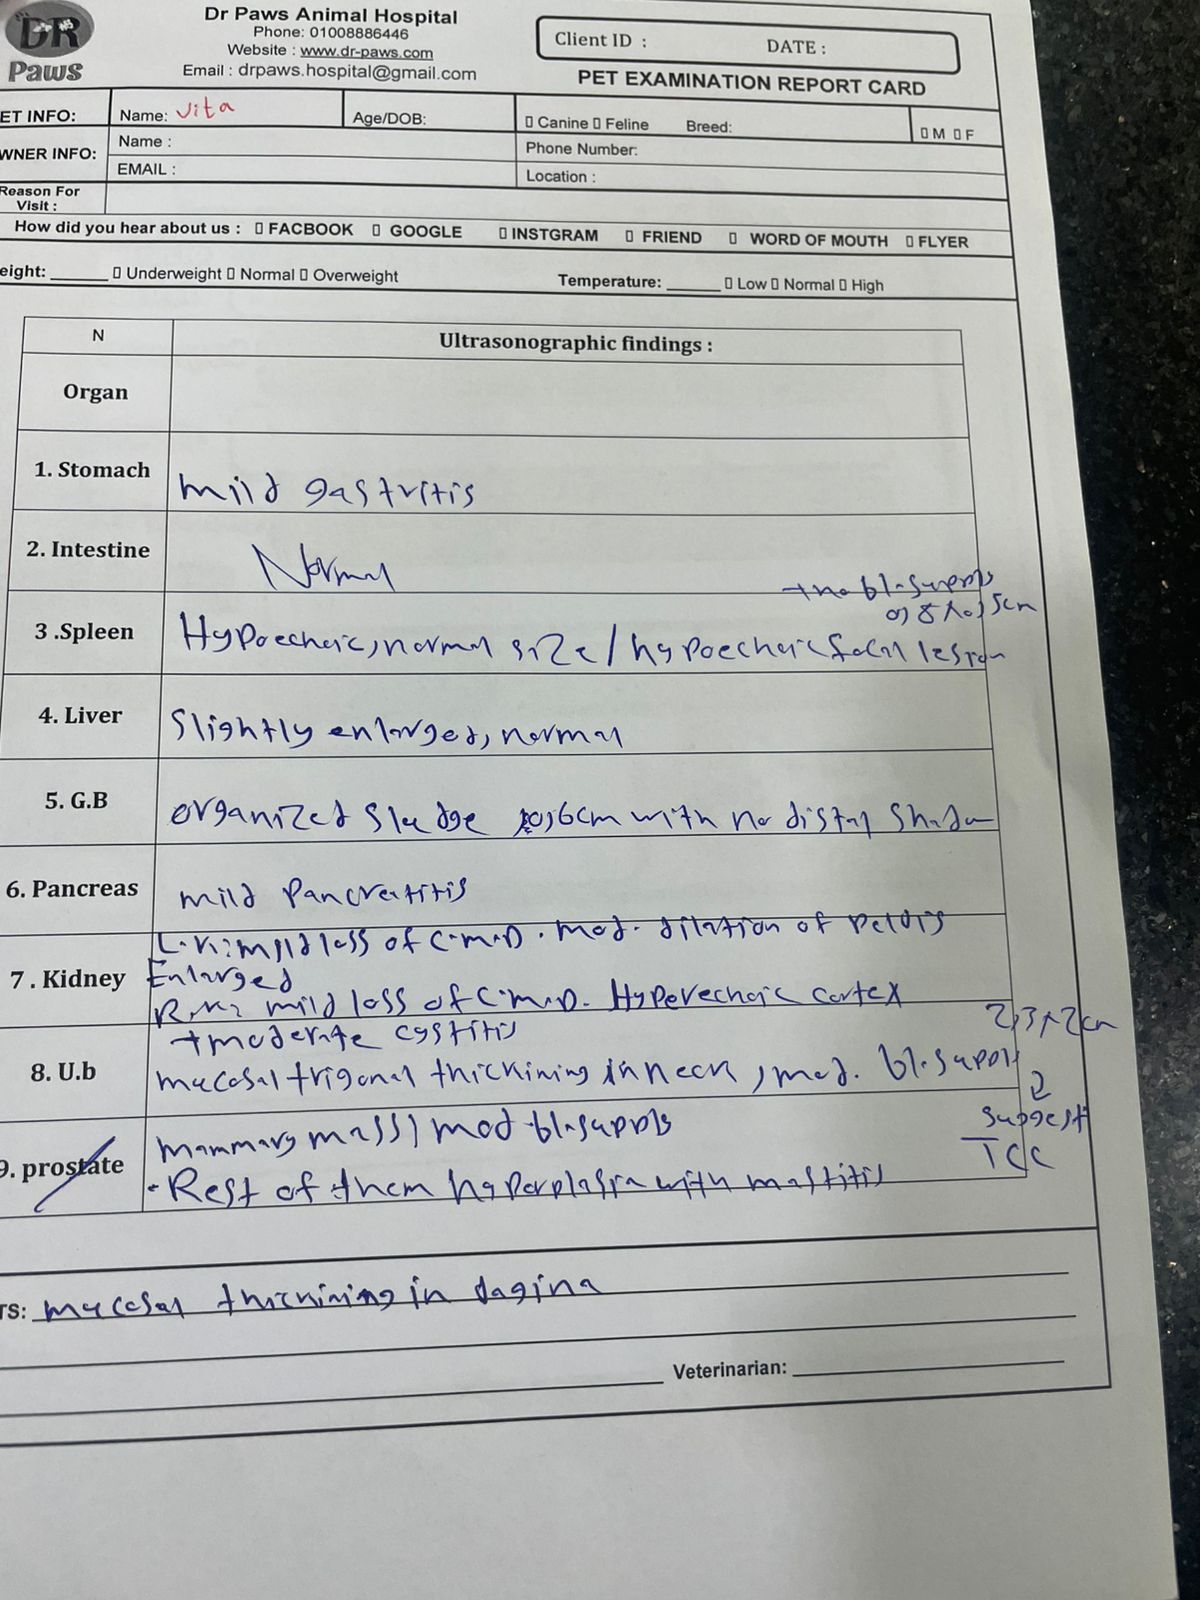 DR
Paws
Dr Paws Animal Hospital
Phone: 01008886446
Website : www.dr-paws.com
Email : drpaws.hospital@gmail.com
Client ID : DATE :
PET EXAMINATION REPORT CARD
ET INFO: Name: Vita Age/DOB: Canine Feline Breed: M F
WNER INFO: Name : Phone Number:
EMAIL : Location :
Reason For
Visit :
How did you hear about us : FACBOOK GOOGLE INSTGRAM FRIEND WORD OF MOUTH FLYER
eight: ______ Underweight Normal Overweight Temperature: ______ Low Normal High
N Ultrasonographic findings :
Organ
1. Stomach mild gastritis
2. Intestine Normal
+no bl.supply
0,8x0,5cm
3 .Spleen Hypoechoic, normal size / hypoechoic focal lesion
4. Liver Slightly enlarged, normal
5. G.B organized sludge 0,6cm with no distal shadow
6. Pancreas mild Pancreatitis
L.K: mild loss of C.M.D. mod. dilation of Pelvis
7 . Kidney Enlarged
R.K: mild loss of C.M.D. Hyperechoic cortex
+moderate cystitis 2,3x2cm
8. U.b mucosal trigonal thickining in neck, mod. bl.supply
suggest
TCC
mammary mass, mod bl.supply
9. prostate
- Rest of them hyperplasia with mastitis
TS: mucosal thickining in vagina
Veterinarian: